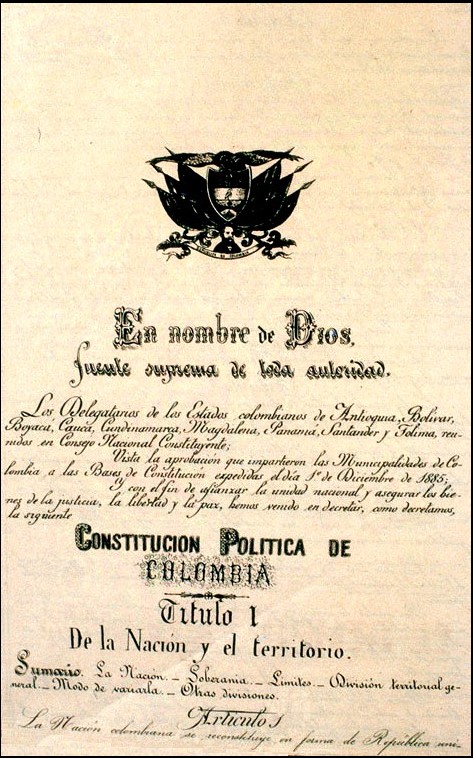 En nombre de Dios,
fuente suprema de toda autoridad.
Los Delegatarios de los Estados colombianos de Antioquia, Bolívar,
Boyacá, Cauca, Cundinamarca, Magdalena, Panamá, Santander y Tolima, reu-
nidos en Consejo Nacional Constituyente;
Vista la aprobación que impartieron las Municipalidades de Co-
lombia a las Bases de Constitución expedidas el día 1º de Diciembre de 1885;
Y con el fin de afianzar la unidad nacional y asegurar los bie-
nes de la justicia, la libertad y la paz, hemos venido en decretar, como decretamos,
la siguiente
CONSTITUCION POLITICA DE
COLOMBIA
Titulo I
De la Nación y el territorio.
Sumario. La Nación. – Soberanía. – Límites. – División territorial ge-
neral. – Modo de variarla. – Otras divisiones.
Artículo 1
La Nación colombiana se reconstituye en forma de República uni-